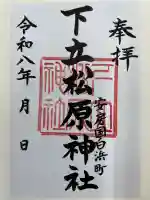 奉拝
安房国白浜町
下立松原神社
令和八年 月 日